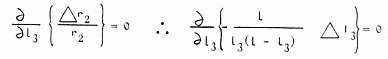 ∂/∂l₃ {△r₂/r₂} = 0 ∴ ∂/∂l₃ {-l/l₃(l - l₃) △l₃} = 0